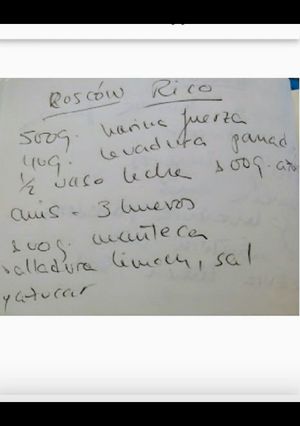 ROSCÓN RICO
500g. harina fuerza
40g. levadura panad
½ vaso leche 100g. azú
anis - 3 huevos
100g. manteca
ralladura limon, sal
y azucar